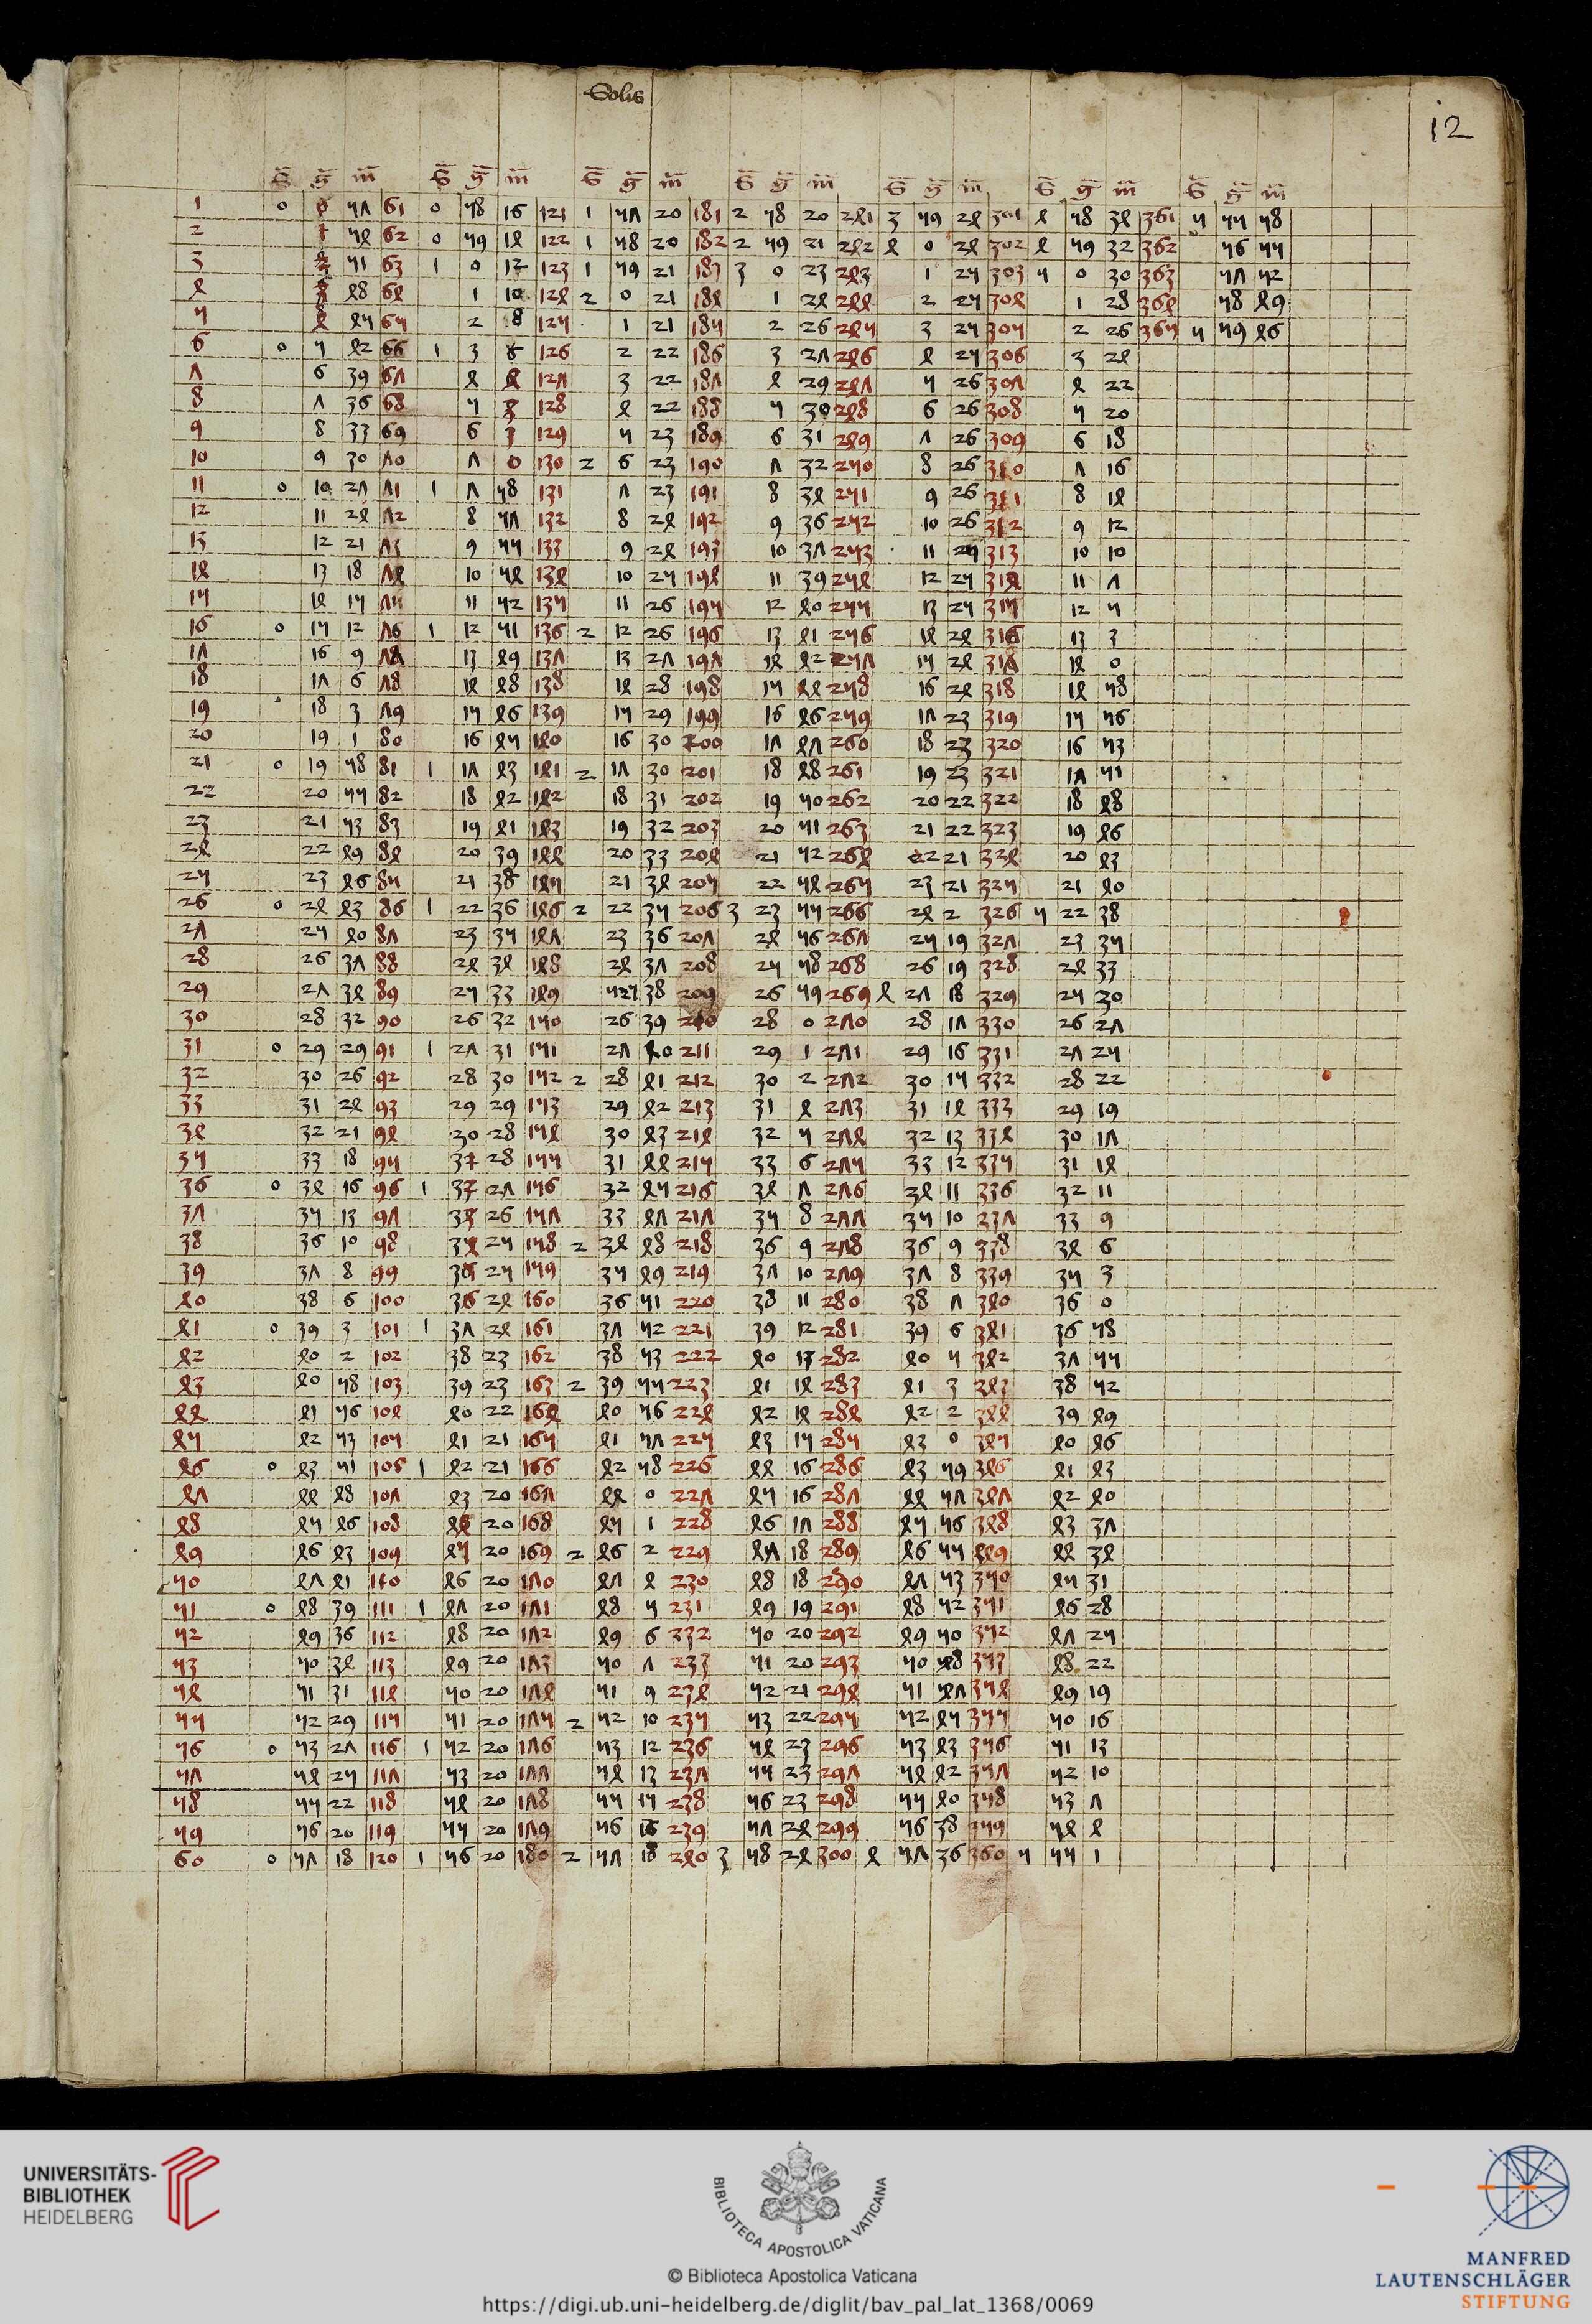 Solis
12
S g m S g m S g m S g m S g m S g m S g m
1 0 0 57 61 0 58 16 121 1 57 20 181 2 58 20 241 3 59 24 301 4 58 34 361 5 55 58
2 1 54 62 0 59 14 122 1 58 20 182 2 59 21 242 4 0 24 302 4 59 32 362 56 55
3 2 51 63 1 0 12 123 1 59 21 183 3 0 23 243 1 25 303 5 0 30 363 57 52
4 3 48 64 1 10 124 2 0 21 184 1 24 244 2 25 304 1 28 364 58 49
5 4 45 65 2 8 125 1 21 185 2 26 245 3 25 305 2 26 365 5 59 46
6 0 5 42 66 1 3 6 126 2 22 186 3 27 246 4 25 306 3 24
7 6 39 67 4 4 127 3 22 187 4 29 247 5 26 307 4 22
8 7 36 68 5 3 128 4 22 188 5 30 248 6 26 308 5 20
9 8 33 69 6 3 129 5 23 189 6 31 249 7 26 309 6 18
10 9 30 70 7 0 130 2 6 23 190 7 32 250 8 26 310 7 16
11 0 10 27 71 1 7 58 131 7 23 191 8 34 251 9 26 311 8 14
12 11 24 72 8 57 132 8 24 192 9 36 252 10 26 312 9 12
13 12 21 73 9 55 133 9 24 193 10 37 253 11 25 313 10 10
14 13 18 74 10 54 134 10 25 194 11 39 254 12 25 314 11 7
15 14 15 75 11 52 135 11 26 195 12 40 255 13 25 315 12 5
16 0 15 12 76 1 12 51 136 2 12 26 196 13 41 256 14 24 316 13 3
17 16 9 77 13 49 137 13 27 197 14 42 257 15 24 317 14 0
18 17 6 78 14 48 138 14 28 198 15 44 258 16 24 318 14 58
19 18 3 79 15 46 139 15 29 199 16 46 259 17 23 319 15 56
20 19 1 80 16 45 140 16 30 200 17 47 260 18 23 320 16 53
21 0 19 58 81 1 17 43 141 2 17 30 201 18 48 261 19 23 321 17 51
22 20 55 82 18 42 142 18 31 202 19 50 262 20 22 322 18 48
23 21 53 83 19 41 143 19 32 203 20 51 263 21 22 323 19 46
24 22 49 84 20 39 144 20 33 204 21 52 264 22 21 324 20 43
25 23 46 85 21 38 145 21 34 205 22 54 265 23 21 325 21 40
26 0 24 43 86 1 22 36 146 2 22 35 206 3 23 55 266 24 2 326 5 22 38
27 25 40 87 23 35 147 23 36 207 24 56 267 25 19 327 23 35
28 26 37 88 24 34 148 24 37 208 25 58 268 26 19 328 24 33
29 27 34 89 25 33 149 25 38 209 26 59 269 4 27 18 329 25 30
30 28 32 90 26 32 150 26 39 210 28 0 270 28 17 330 26 27
31 0 29 29 91 1 27 31 151 27 40 211 29 1 271 29 16 331 27 25
32 30 26 92 28 30 152 2 28 41 212 30 2 272 30 15 332 28 22
33 31 24 93 29 29 153 29 42 213 31 4 273 31 14 333 29 19
34 32 21 94 30 28 154 30 43 214 32 5 274 32 13 334 30 17
35 33 18 95 31 28 155 31 44 215 33 6 275 33 12 335 31 14
36 0 34 16 96 1 32 27 156 32 45 216 34 7 276 34 11 336 32 11
37 35 13 97 33 26 157 33 47 217 35 8 277 35 10 337 33 9
38 36 10 98 34 25 158 2 34 48 218 36 9 278 36 9 338 34 6
39 37 8 99 35 25 159 35 49 219 37 10 279 37 8 339 35 3
40 38 6 100 36 24 160 36 51 220 38 11 280 38 7 340 36 0
41 0 39 3 101 1 37 24 161 37 52 221 39 12 281 39 6 341 36 58
42 40 2 102 38 23 162 38 53 222 40 13 282 40 5 342 37 55
43 40 58 103 39 23 163 2 39 55 223 41 14 283 41 3 343 38 52
44 41 56 104 40 22 164 40 56 224 42 14 284 42 2 344 39 49
45 42 53 105 41 21 165 41 57 225 43 15 285 43 0 345 40 46
46 0 43 51 106 1 42 21 166 42 58 226 44 16 286 43 59 346 41 43
47 44 48 107 43 20 167 44 0 227 45 16 287 44 57 347 42 40
48 45 46 108 44 20 168 45 1 228 46 17 288 45 56 348 43 37
49 46 43 109 45 20 169 2 46 2 229 47 18 289 46 55 449 44 34
50 47 41 110 46 20 170 47 4 230 48 18 290 47 53 350 45 31
51 0 48 39 111 1 47 20 171 48 5 231 49 19 291 48 52 351 46 28
52 49 36 112 48 20 172 49 6 232 50 20 292 49 50 352 47 25
53 50 34 113 49 20 173 50 7 233 51 20 293 50 48 353 48 22
54 51 31 114 50 20 174 51 9 234 52 21 294 51 47 354 49 19
55 52 29 115 51 20 175 2 52 10 235 53 22 295 52 45 355 50 16
56 0 53 27 116 1 52 20 176 53 12 236 54 23 296 53 43 356 51 13
57 54 25 117 53 20 177 54 13 237 55 23 297 54 42 357 52 10
58 55 22 118 54 20 178 55 15 238 56 23 298 55 40 358 53 7
59 56 20 119 55 20 179 56 16 239 57 24 299 56 38 359 54 4
60 0 57 18 120 1 56 20 180 2 57 18 240 3 58 24 300 4 57 36 360 5 55 1
UNIVERSITÄTS-
BIBLIOTHEK
HEIDELBERG
BIBLIOTECA APOSTOLICA VATICANA
© Biblioteca Apostolica Vaticana
https://digi.ub.uni-heidelberg.de/diglit/bav_pal_lat_1368/0069
MANFRED
LAUTENSCHLÄGER
STIFTUNG